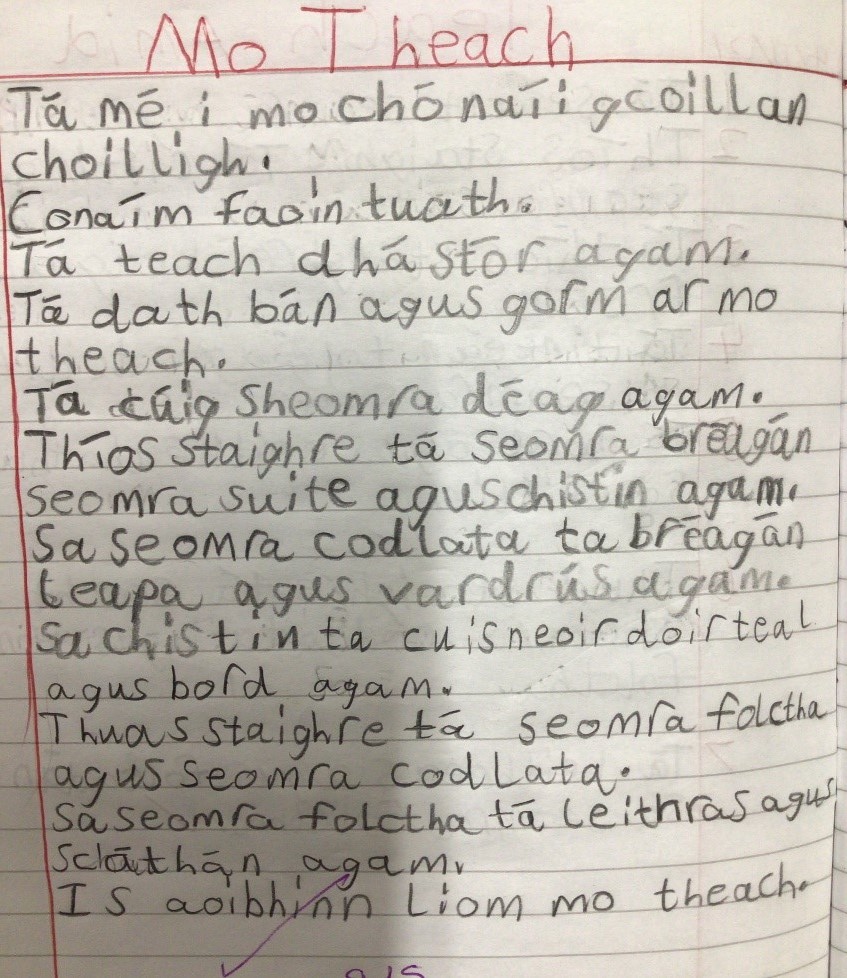 Mo Theach
Tā mē i mo chō naīi gcoillan
choilligh.
Conaīm faoin tuath.
Tā teach dhā stōr agam.
Tā dath bān agus gorm ar mo
theach.
Tā cúig sheomra dēag agam.
Thīos staighre tā seomra brēagān
seomra suite agus chistin agam.
Sa seomra codlata ta brēagān
teapa agus vardrús agam.
Sa chistin ta cuisneoir doirteal
agus bord agam.
Thuas staighre tā seomra folctha
agus seomra codlata.
Sa seomra folctha tā leithras agus
scāthān agam.
Is aoibhinn liom mo theach.